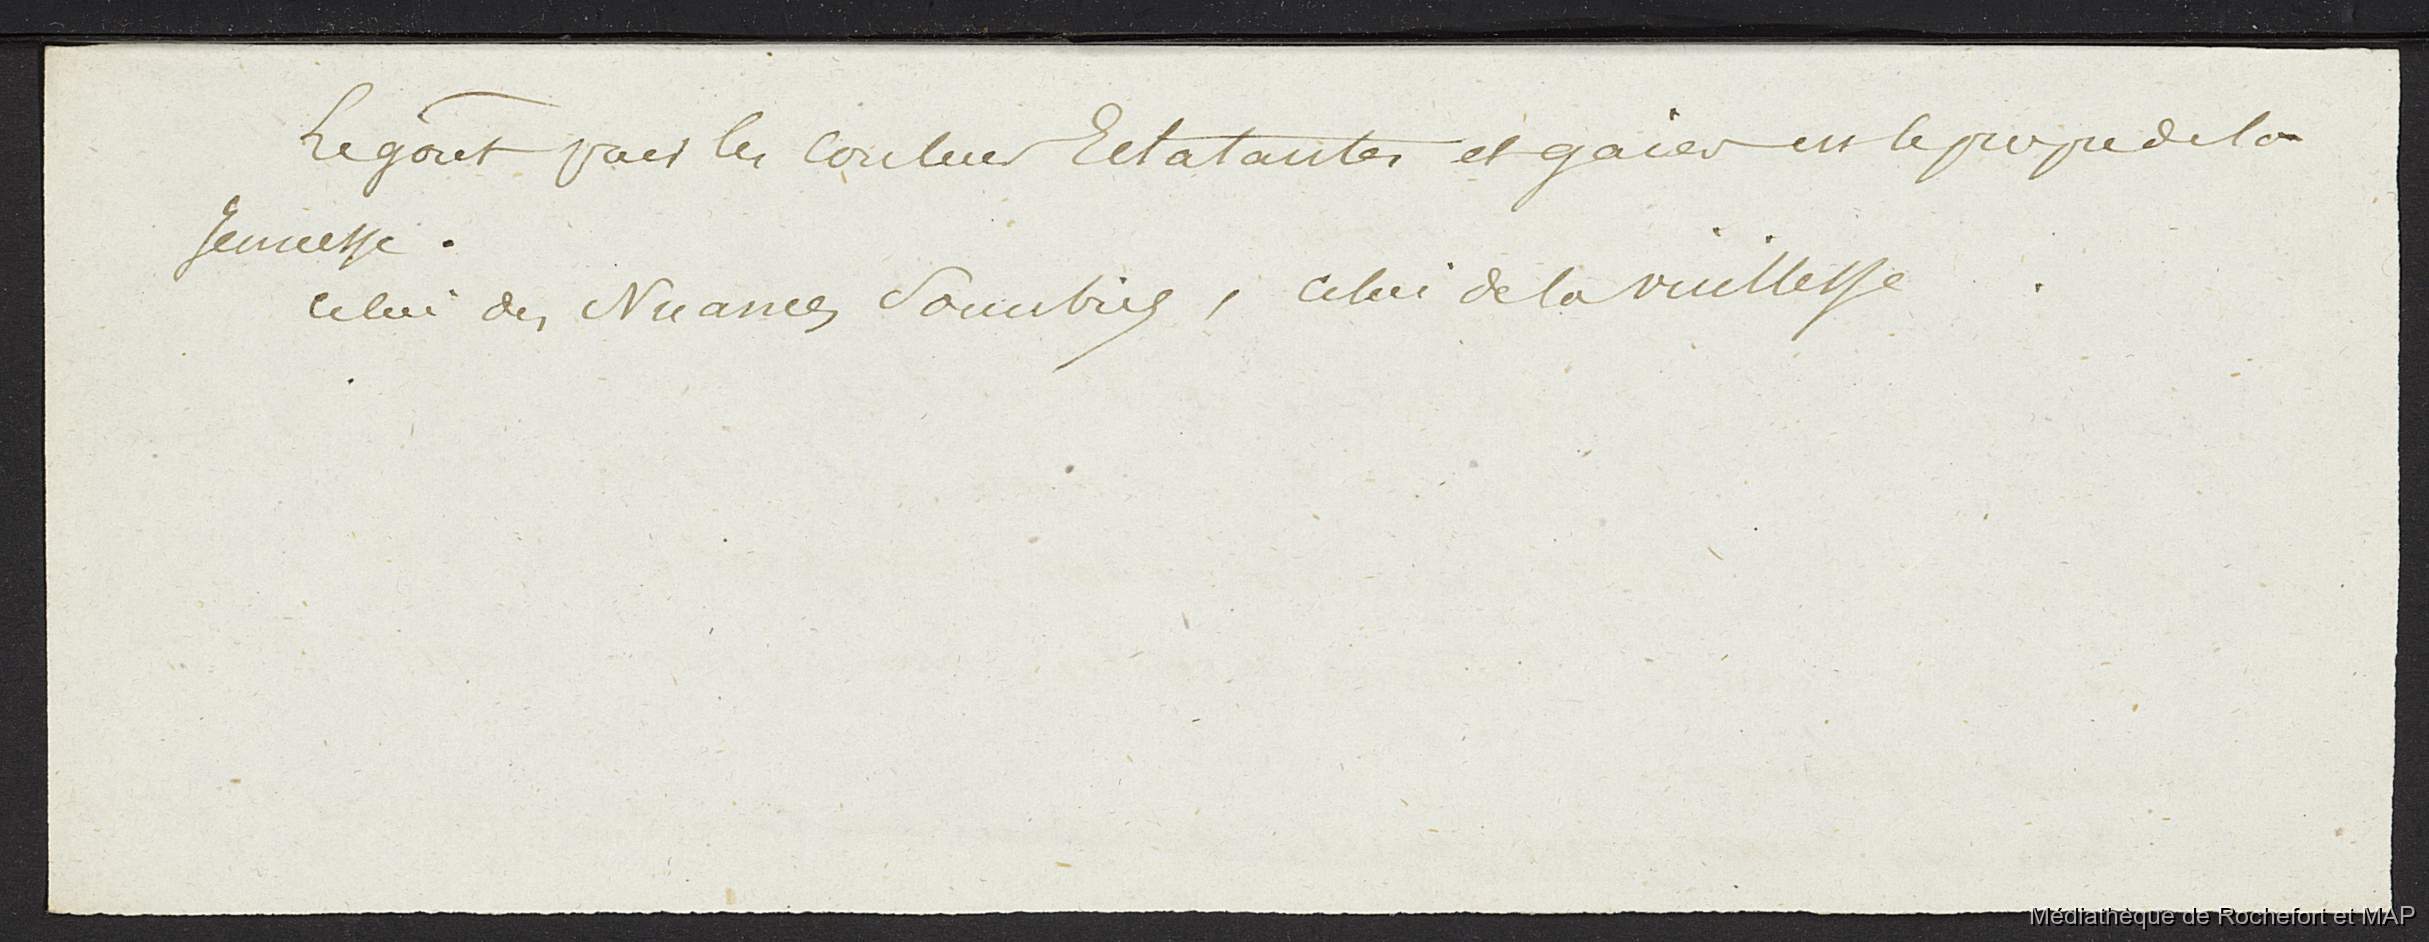 Le goût pour les Couleurs Eclatantes et gaies est le propre de la
Jeunesse.
celui des Nuances Sombres, celui de la vieillesse.
Médiathèque de Rochefort et MAP